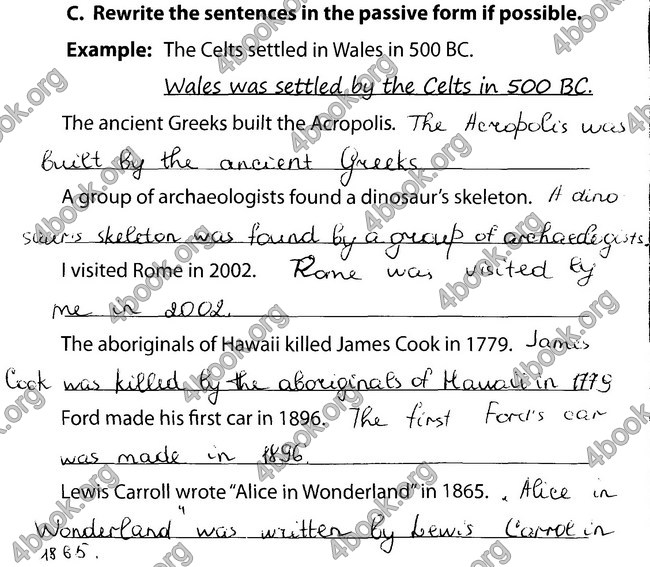 C. Rewrite the sentences in the passive form if possible.
Example: The Celts settled in Wales in 500 BC.
Wales was settled by the Celts in 500 BC.
The ancient Greeks built the Acropolis. The Acropolis was
built by the ancient Greeks
A group of archaeologists found a dinosaur's skeleton. A dino
saur's skeleton was found by a group of archaeologists.
I visited Rome in 2002. Rome was visited by
me in 2002.
The aboriginals of Hawaii killed James Cook in 1779. James
Cook was killed by the aboriginals of Hawaii in 1779
Ford made his first car in 1896. The first Ford's car
was made in 1896.
Lewis Carroll wrote "Alice in Wonderland" in 1865. „Alice in
Wonderland" was written by Lewis Carrol in
1865.
4book.org